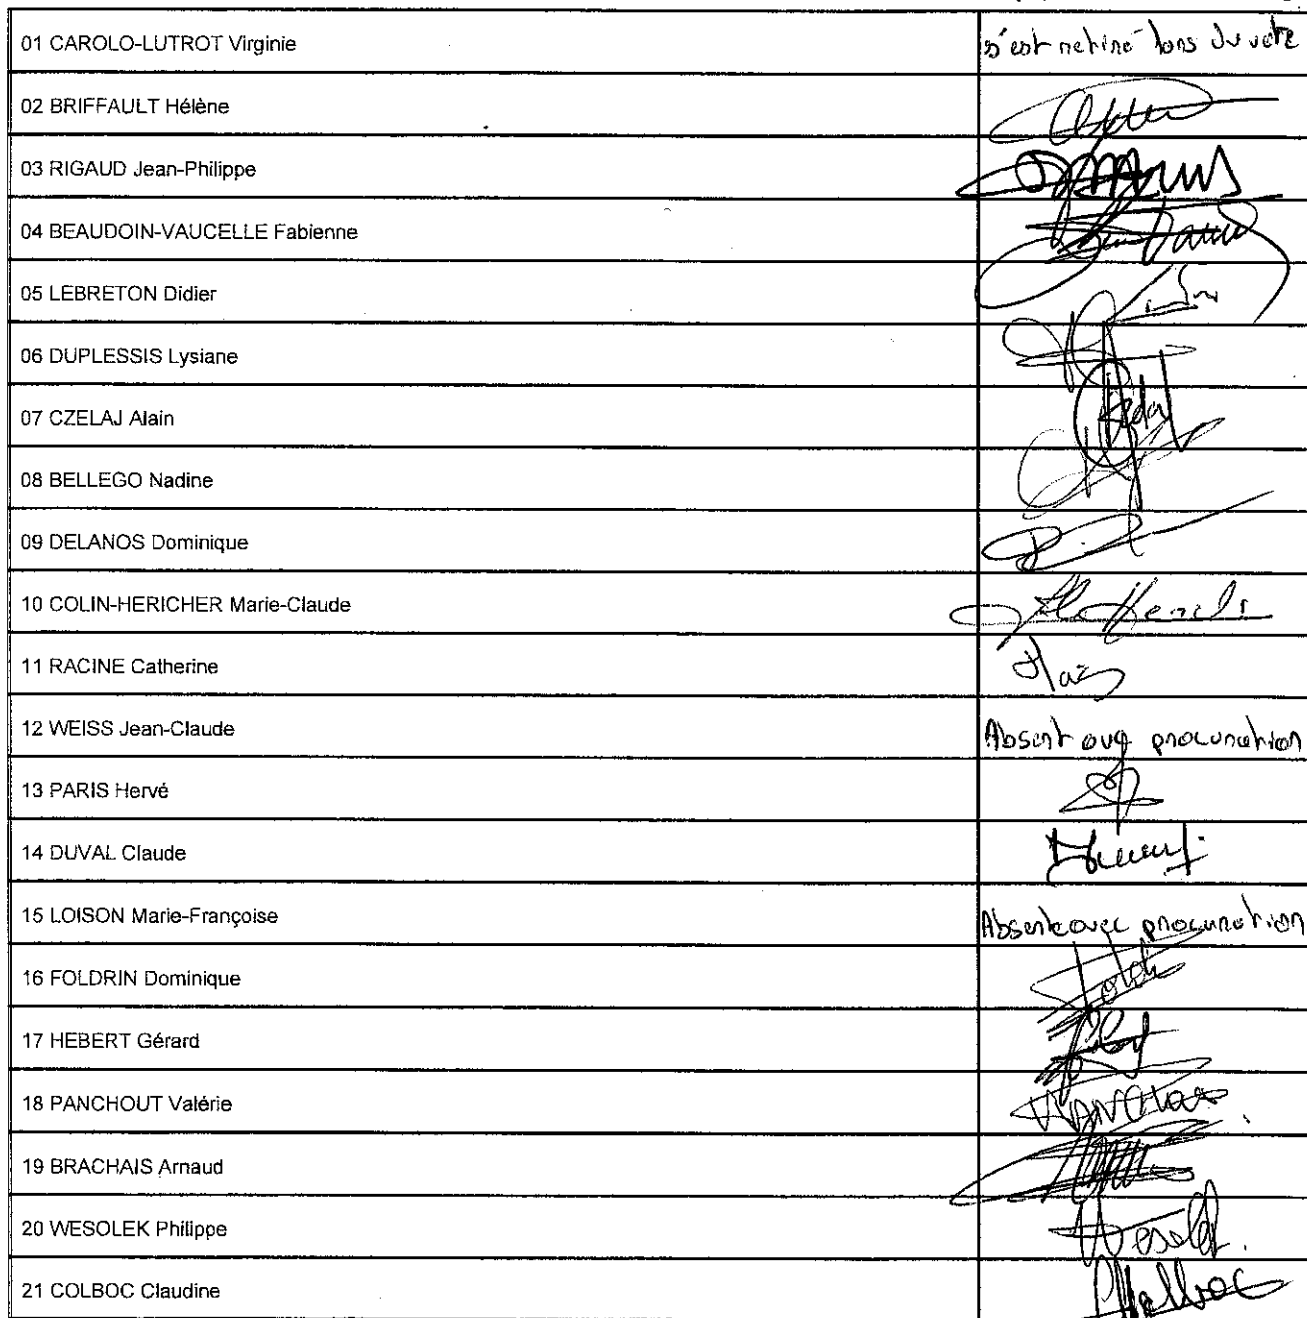 01 CAROLO-LUTROT Virginie s'est retiré lors du vote
02 BRIFFAULT Hélène
03 RIGAUD Jean-Philippe
04 BEAUDOIN-VAUCELLE Fabienne
05 LEBRETON Didier
06 DUPLESSIS Lysiane
07 CZELAJ Alain
08 BELLEGO Nadine
09 DELANOS Dominique
10 COLIN-HERICHER Marie-Claude
11 RACINE Catherine
12 WEISS Jean-Claude Absent avec procuration
13 PARIS Hervé
14 DUVAL Claude
15 LOISON Marie-Françoise Absente avec procuration
16 FOLDRIN Dominique
17 HEBERT Gérard
18 PANCHOUT Valérie
19 BRACHAIS Arnaud
20 WESOLEK Philippe
21 COLBOC Claudine